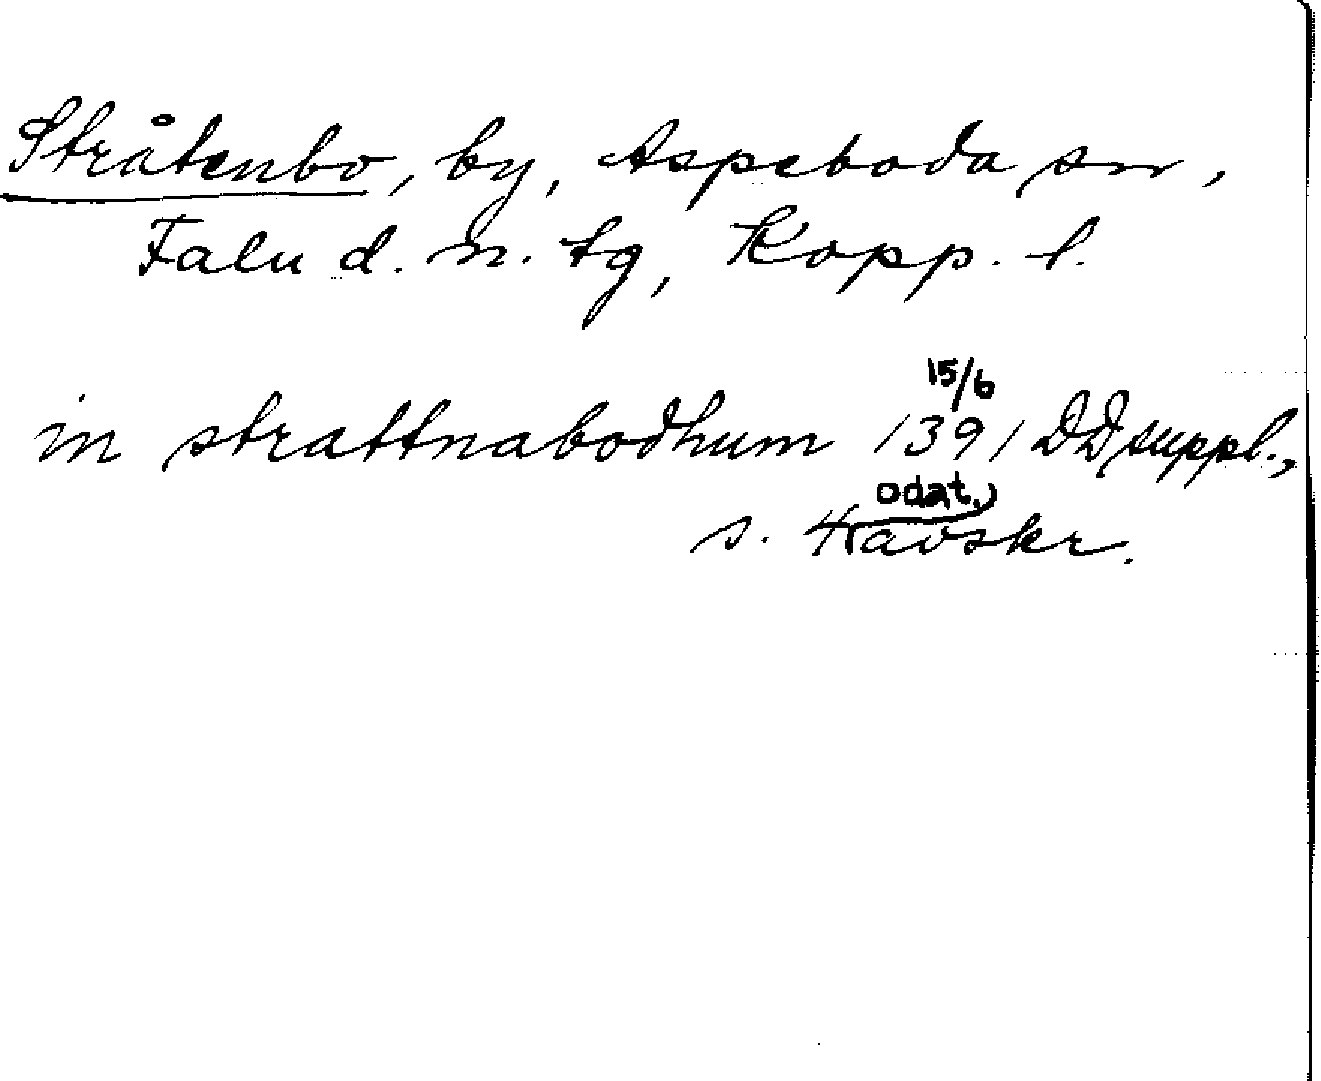 Stråtenbo, by, Aspeboda sn,
Falu d. n. tg, Kopp. l.
15/6
in strattnabodhum 1391 DD suppl.,
odat.
s. avskr.